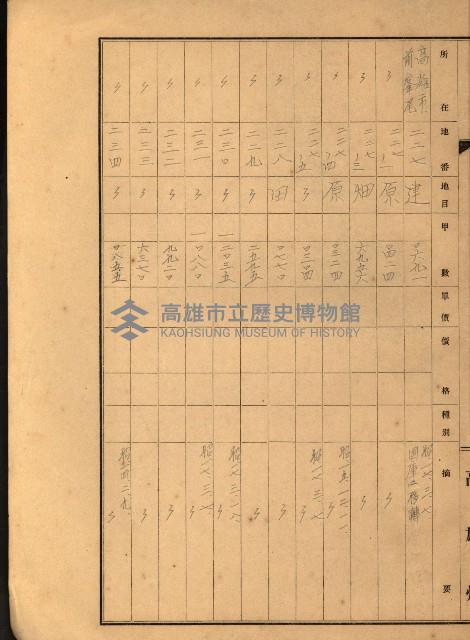 所在 地番 地目 甲數 單價 價格 種別 摘要
高雄市前峯尾 二二七 建 〇六九一 昭一七、三、七 國庫ニ移轉
〃 二二七ノ二 原 〃
〃 二二七ノ三 畑 六九五六 〃
〃 二二七ノ四 原 〇三二四 昭一五、一二、一一
〃 二二七ノ五 〃 昭一七、三、七
〃 二二八 田 〇七七〇 〃
〃 二二九 〃 二五五五 〃
〃 二三〇 〃 一二〇三五 昭一七、三、一八
〃 二三一 〃 一〇八八〇 昭一七、三、七
〃 二三二 〃 九九二〇 〃
〃 二三三 〃 六三七〇 〃
〃 二三四 〃 〇八五五 〃
高雄市立歷史博物館
KAOHSIUNG MUSEUM OF HISTORY
高雄州